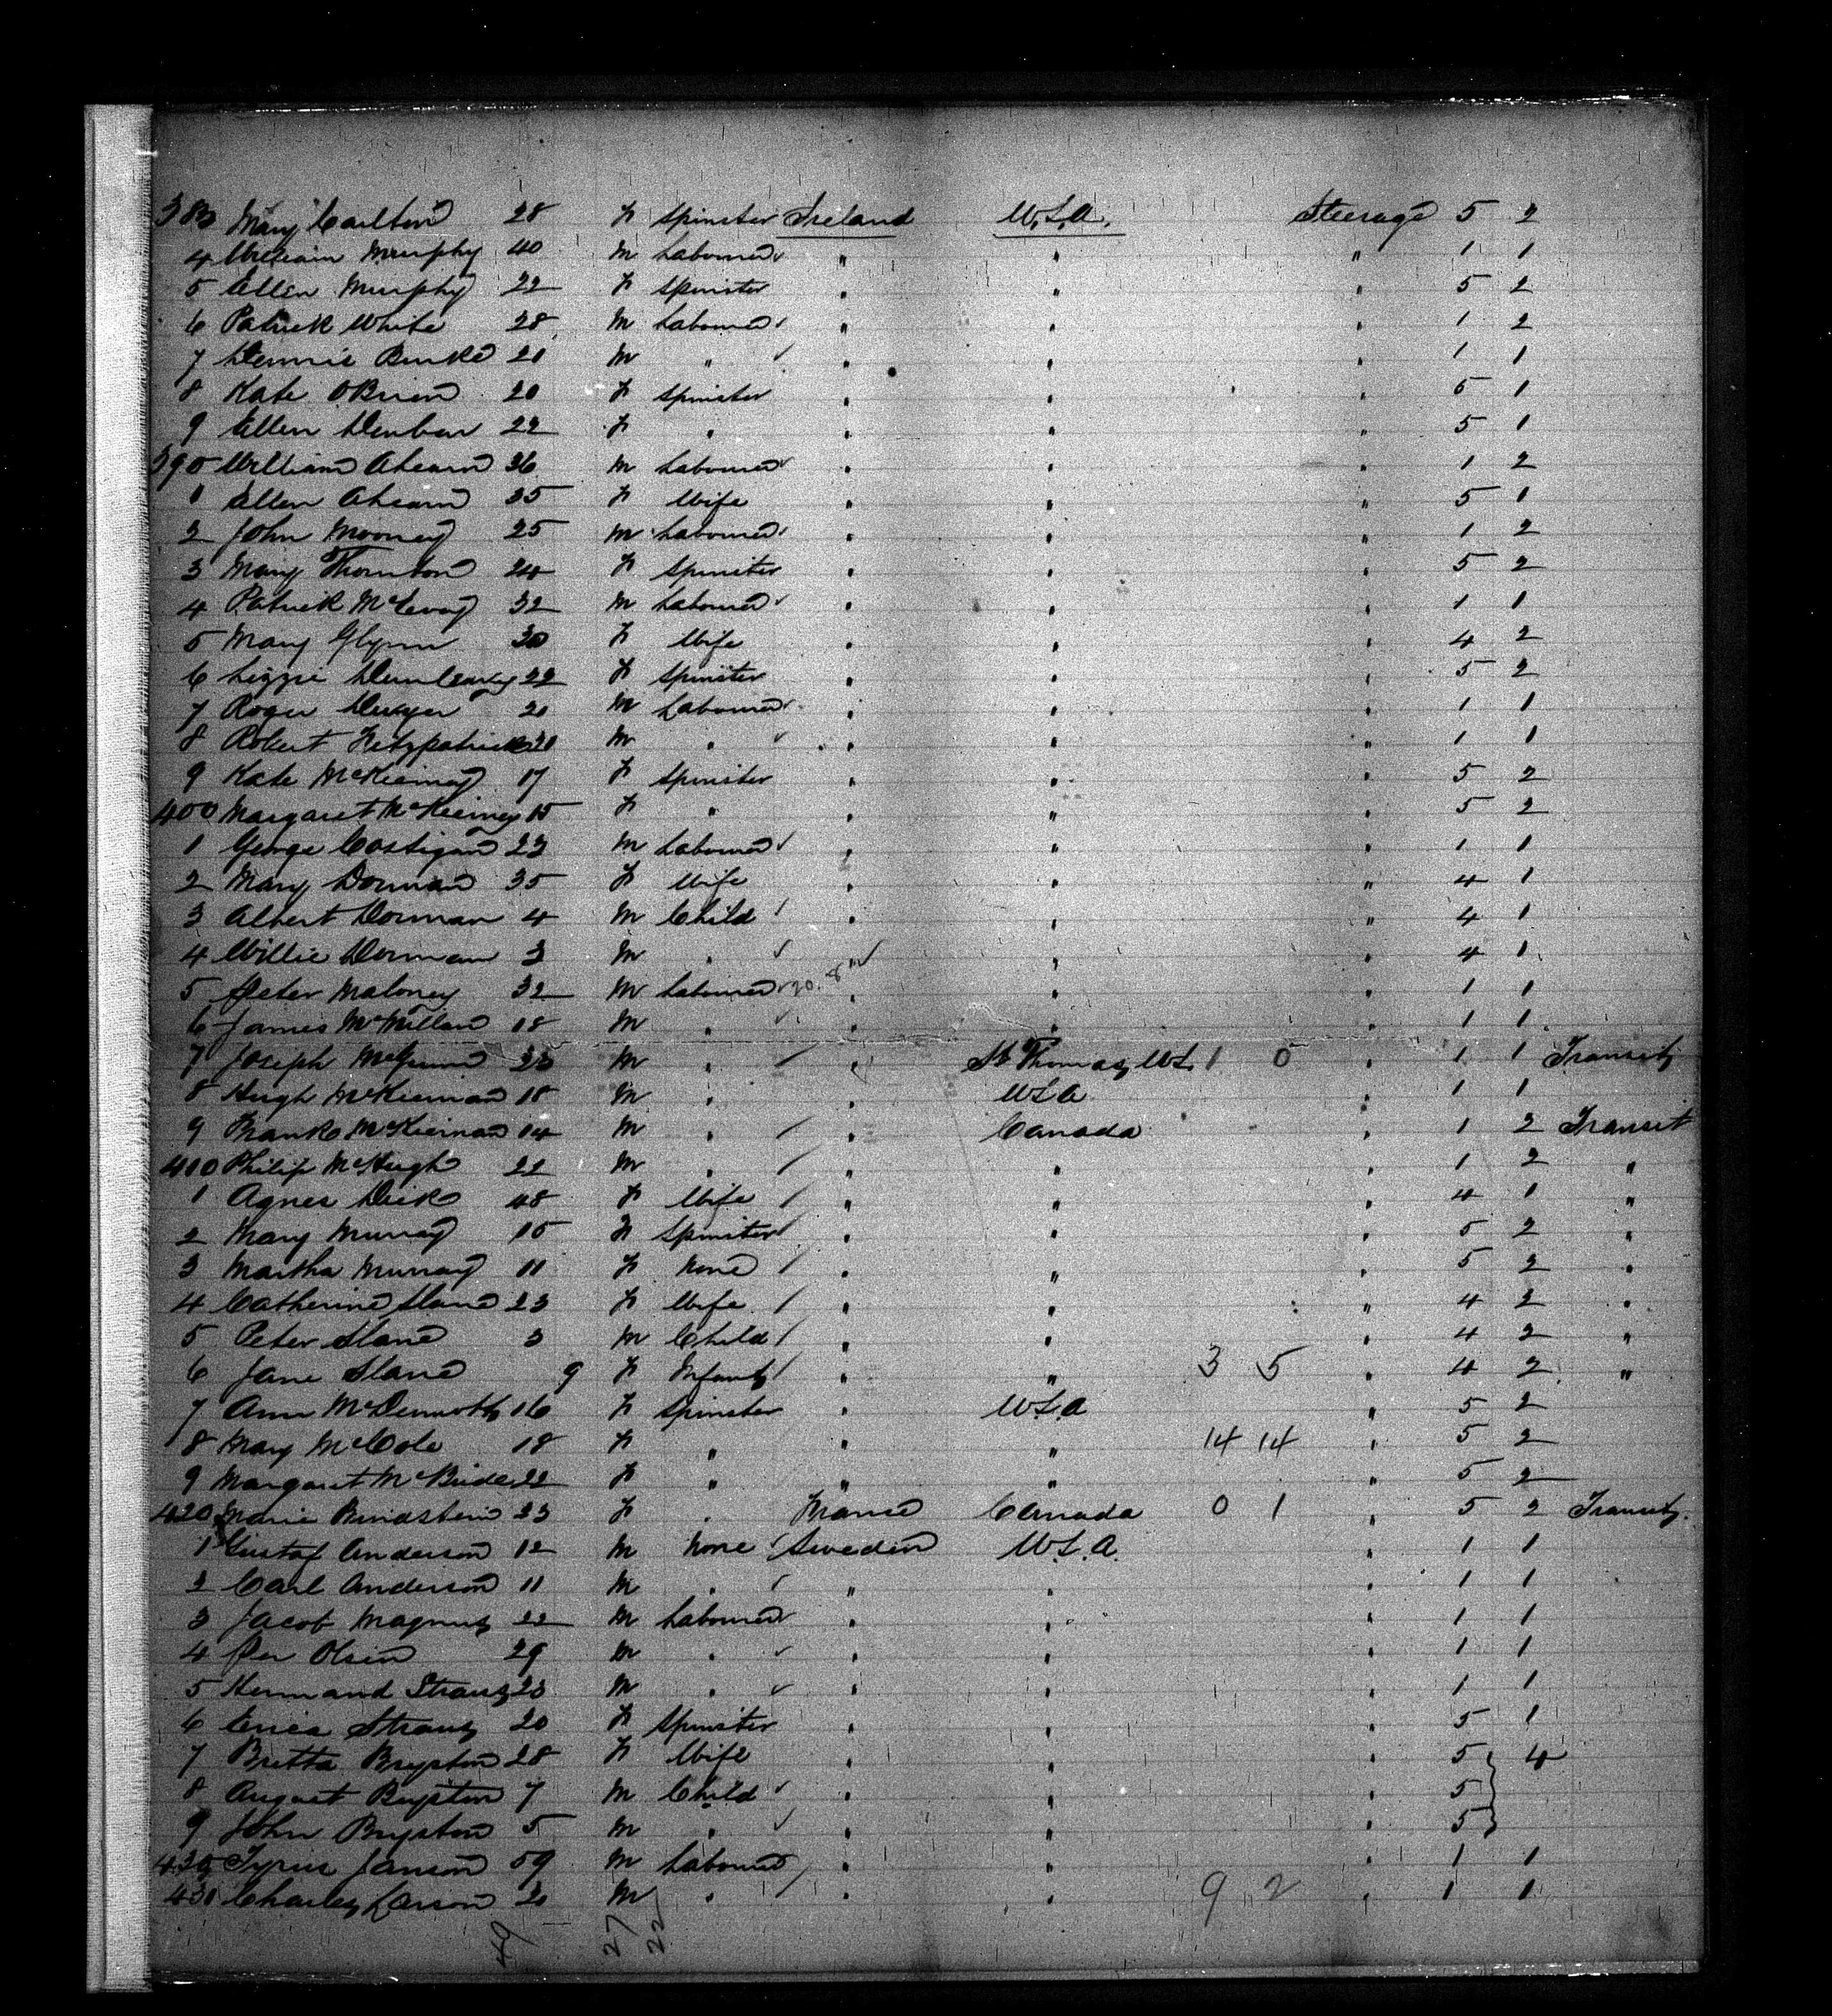 383 Mary Carlton 28 F Spinster Ireland U.S.A. Steerage 5 2
4 William Murphy 40 M Labourer " " " 1 1
5 Ellen Murphy 22 F Spinster " " " 5 2
6 Patrick White 28 M Labourer " " " 1 2
7 Dennis Burke 21 M " " " " 1 1
8 Kate OBrien 20 F Spinster " " " 5 1
9 Ellen 22 F " " " " 5 1
390 William Ahearn 36 M Labourer " " " 1 2
1 Ellen Ahearn 35 F Wife " " " 5 1
2 John Mooney 25 M Labourer " " " 1 2
3 Mary Thornton 24 F Spinster " " " 5 2
4 Patrick McEvoy 32 M Labourer " " " 1 1
5 Mary Glynn 30 F Wife " " " 4 2
6 Lizzie Dunleavy 22 F Spinster " " " 5 2
7 Roger Dwyer 21 M Labourer " " " 1 1
8 Robert Fitzpatrick 21 M " " " " 1 1
9 Kate McKiernay 17 F Spinster " " " 5 2
400 Margaret McKiernay 15 F " " " " 5 2
1 George Costigan 23 M Labourer " " " 1 1
2 Mary Dorman 35 F Wife " " " 4 1
3 Albert Dorman 4 M Child " " " 4 1
4 Willie Dorman 3 M " " " " 4 1
5 Peter Maloney 32 M Labourer " " " 1 1
6 James McMillan 18 M " " " " 1 1
7 Joseph 23 M " " St Thomas, W.I. 1 0 " 1 1 Transit
8 Hugh McKiernan 18 M " " U.S.A " 1 1
9 Frank McKiernan 14 M " " Canada " 1 2 Transit
410 Philip McHugh 22 M " " " " 1 2 "
1 Agnes Dick 48 F Wife " " " 4 1 "
2 Mary Murray 15 F Spinster " " " 5 2 "
3 Martha Murray 11 F None " " " 5 2 "
4 Catherine Slane 23 F Wife " " " 4 2 "
5 Peter Slane 3 M Child " " " 4 2 "
6 Jane Slane 9 F Infant " " 3 5 " 4 2 "
7 Ann McDermott 16 F Spinster " U.S.A " 5 2
8 Mary McCole 18 F " " " 14 14 " 5 2
9 Margaret McBride 22 F " " " " 5 2
420 Marie 23 F " France Canada 0 1 " 5 2 Transit
1 Gustaf Anderson 12 M None Sweden U.S.A. " 1 1
2 Carl Anderson 11 M " " " " 1 1
3 Jacob Magnus 22 M Labourer " " " 1 1
4 Per Olsen 29 M " " " " 1 1
5 Hermand Strang 23 M " " " " 1 1
6 Erica Strang 20 F Spinster " " " 5 1
7 Britta Bryston 28 F Wife " " " 5 4
8 August Bryston 7 M Child " " " 5
9 John Bryston 5 M " " " " 5
430 Janson 59 M Labourer " " " 1 1
431 Charley Larson 20 M " " " 9 2 " 1 1
49 27 22